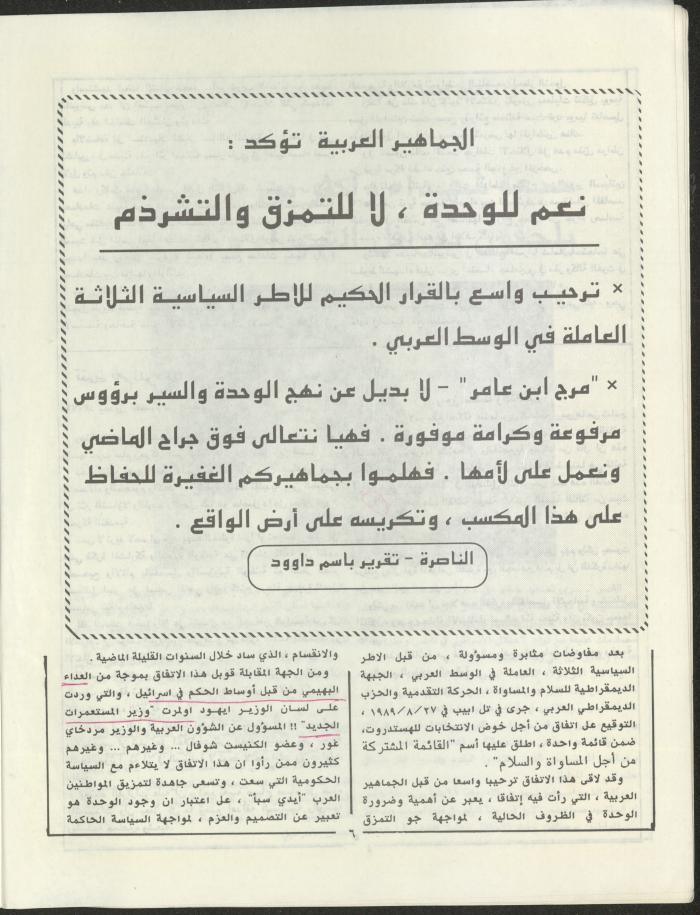 الجماهير العربية تؤكد :
نعم للوحدة ، لا للتمزق والتشرذم
× ترحيب واسع بالقرار الحكيم للاطر السياسية الثلاثة
العاملة في الوسط العربي .
× "مرج ابن عامر" - لا بديل عن نهج الوحدة والسير برؤوس
مرفوعة وكرامة موفورة . فهيا نتعالى فوق جراح الماضي
ونعمل على لأمها . فهلموا بجماهيركم الغفيرة للحفاظ
على هذا المكسب ، وتكريسه على أرض الواقع .
الناصرة - تقرير باسم داوود
بعد مفاوضات مثابرة ومسؤولة ، من قبل الاطر
السياسية الثلاثة ، العاملة في الوسط العربي ، الجبهة
الديمقراطية للسلام والمساواة ، الحركة التقدمية والحزب
الديمقراطي العربي ، جرى في تل ابيب في ١٩٨٩/٨/٢٧ ،
التوقيع على اتفاق من أجل خوض الانتخابات للهستدروت،
ضمن قائمة واحدة ، اطلق عليها أسم "القائمة المشتركة
من أجل المساواة والسلام" .
وقد لاقى هذا الاتفاق ترحيبا واسعا من قبل الجماهير
العربية ، التي رأت فيه إتفاقا ، يعبر عن أهمية وضرورة
الوحدة في الظروف الحالية ، لمواجهة جو التمزق
والانقسام ، الذي ساد خلال السنوات القليلة الماضية .
ومن الجهة المقابلة قوبل هذا الاتفاق بموجة من العداء
البهيمي من قبل أوساط الحكم في اسرائيل ، والتي وردت
على لسان الوزير ايهود اولمرت "وزير المستعمرات
الجديد" !! المسؤول عن الشؤون العربية والوزير مردخاي
غور ، وعضو الكنيست شوفال ... وغيرهم ... وغيرهم
كثيرون ممن رأوا ان هذا الاتفاق لا يتلاءم مع السياسة
الحكومية التي سعت ، وتسعى جاهدة لتمزيق المواطنين
العرب "أيدي سبأ" ، عل اعتبار ان وجود الوحدة هو
تعبير عن التصميم والعزم ، لمواجهة السياسة الحاكمة
٦